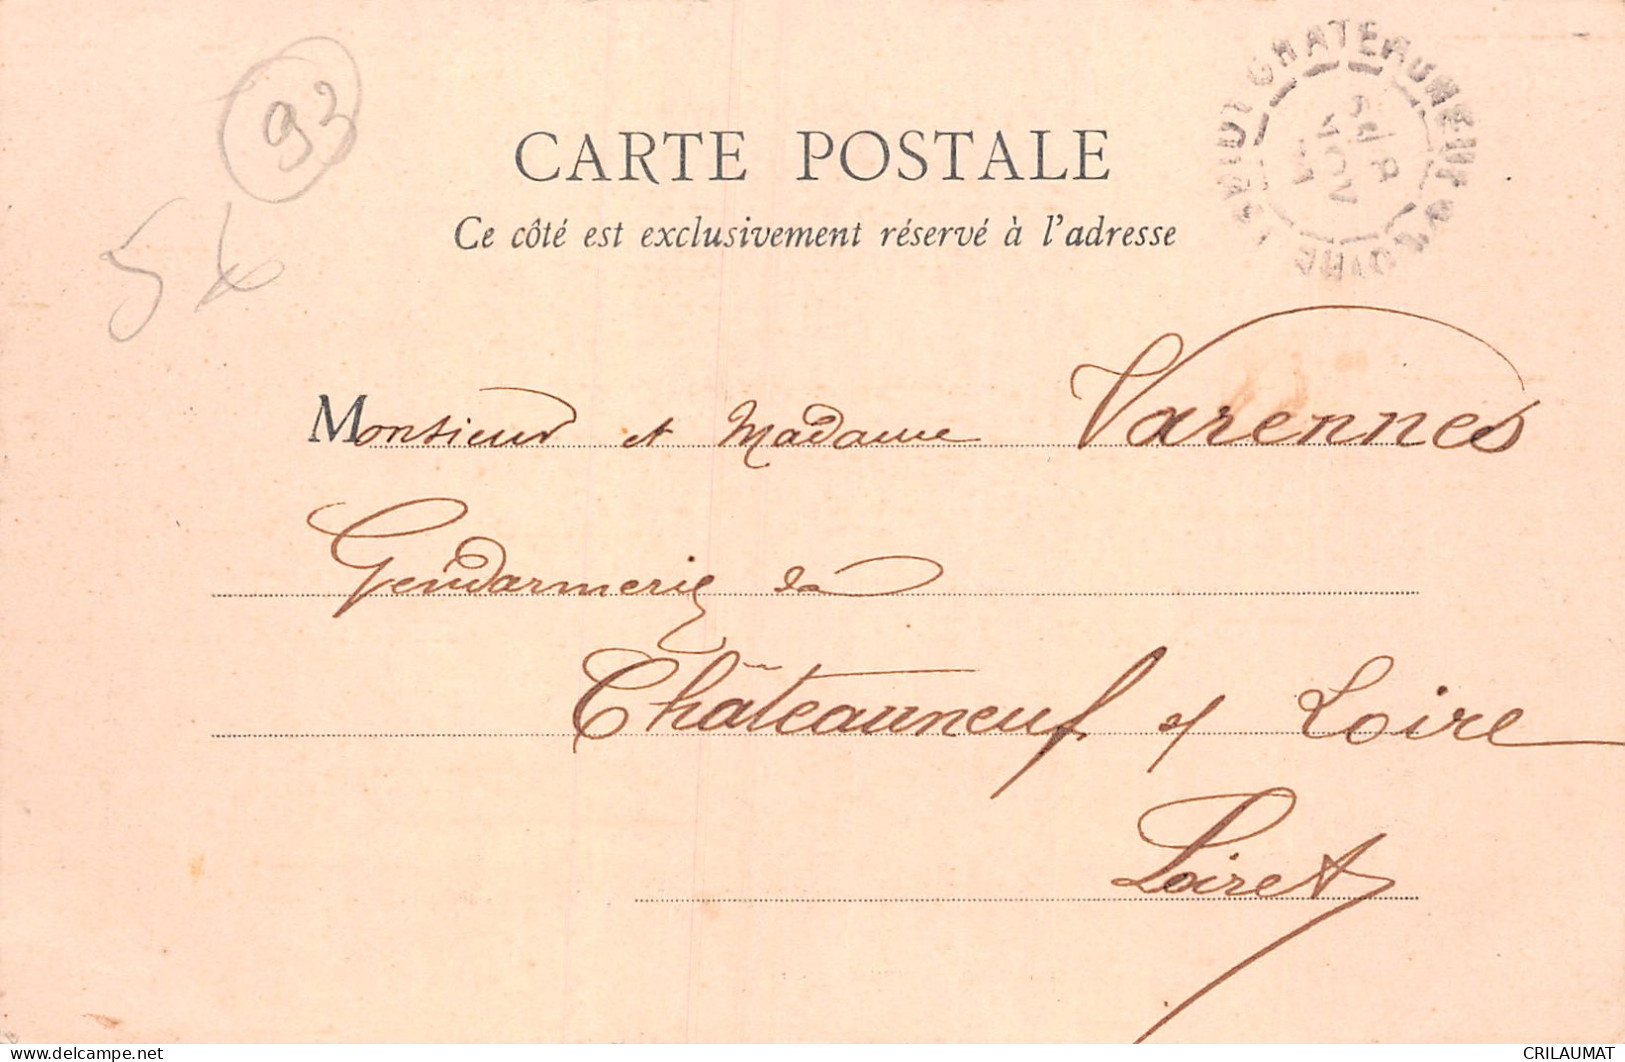 93
CHATEAUNEUF
CARTE POSTALE
Ce côté est exclusivement réservé à l'adresse
Monsieur et Madame Varennes
Gendarmerie de
Châteauneuf s/ Loire
Loiret
www.delcampe.net
CRILAUMAT